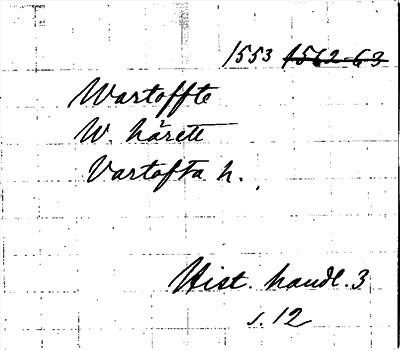 1553 1562-63
Wartoffte
W. härett
Vartofta h.
Hist. handl. 3
s. 12